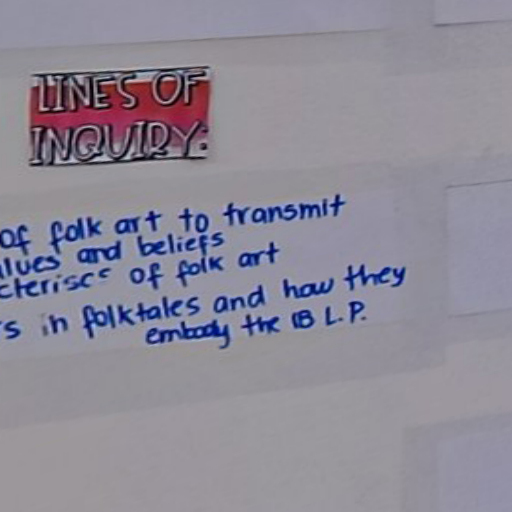 LINES OF
INQUIRY:
of folk art to transmit
and beliefs
of folk art
in folktales and how they
embody the IB L.P.